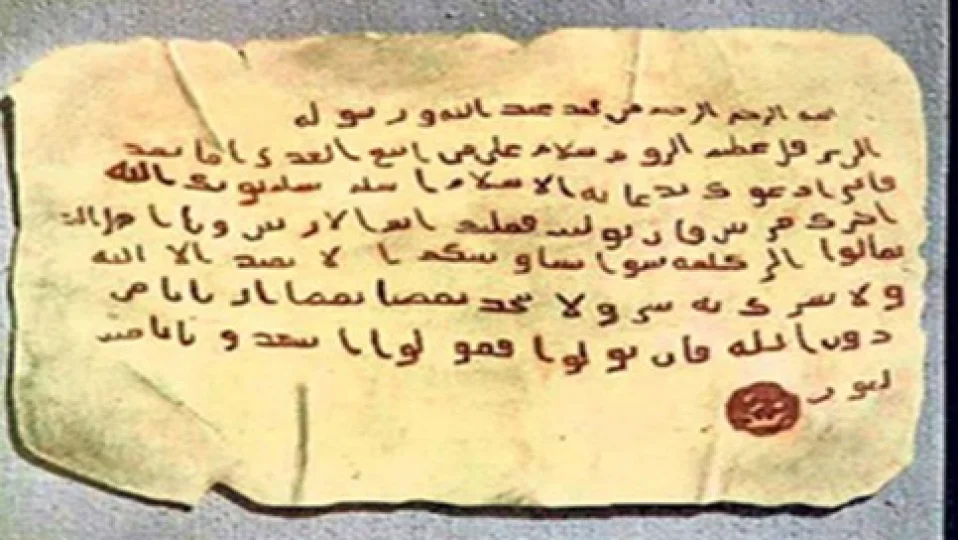 بسم الرحمن الرحيم من محمد عبد الله ورسوله
الى هرقل عظيم الروم سلام على من اتبع الهدى اما بعد
فانى ادعوك بدعاية الاسلام اسلم تسلم يوتك الله
اجرك مرتين فان توليت فعليك اثم الاريسين ويا اهل
تعالوا الى كلمة سوا بيننا وبينكم الا نعبد الا الله
ولا نشرك به شى ولا يتخذ بعضنا بعضا اربابا من
دون الله فان تولوا فقولوا اشهدوا بانا مس
لمون